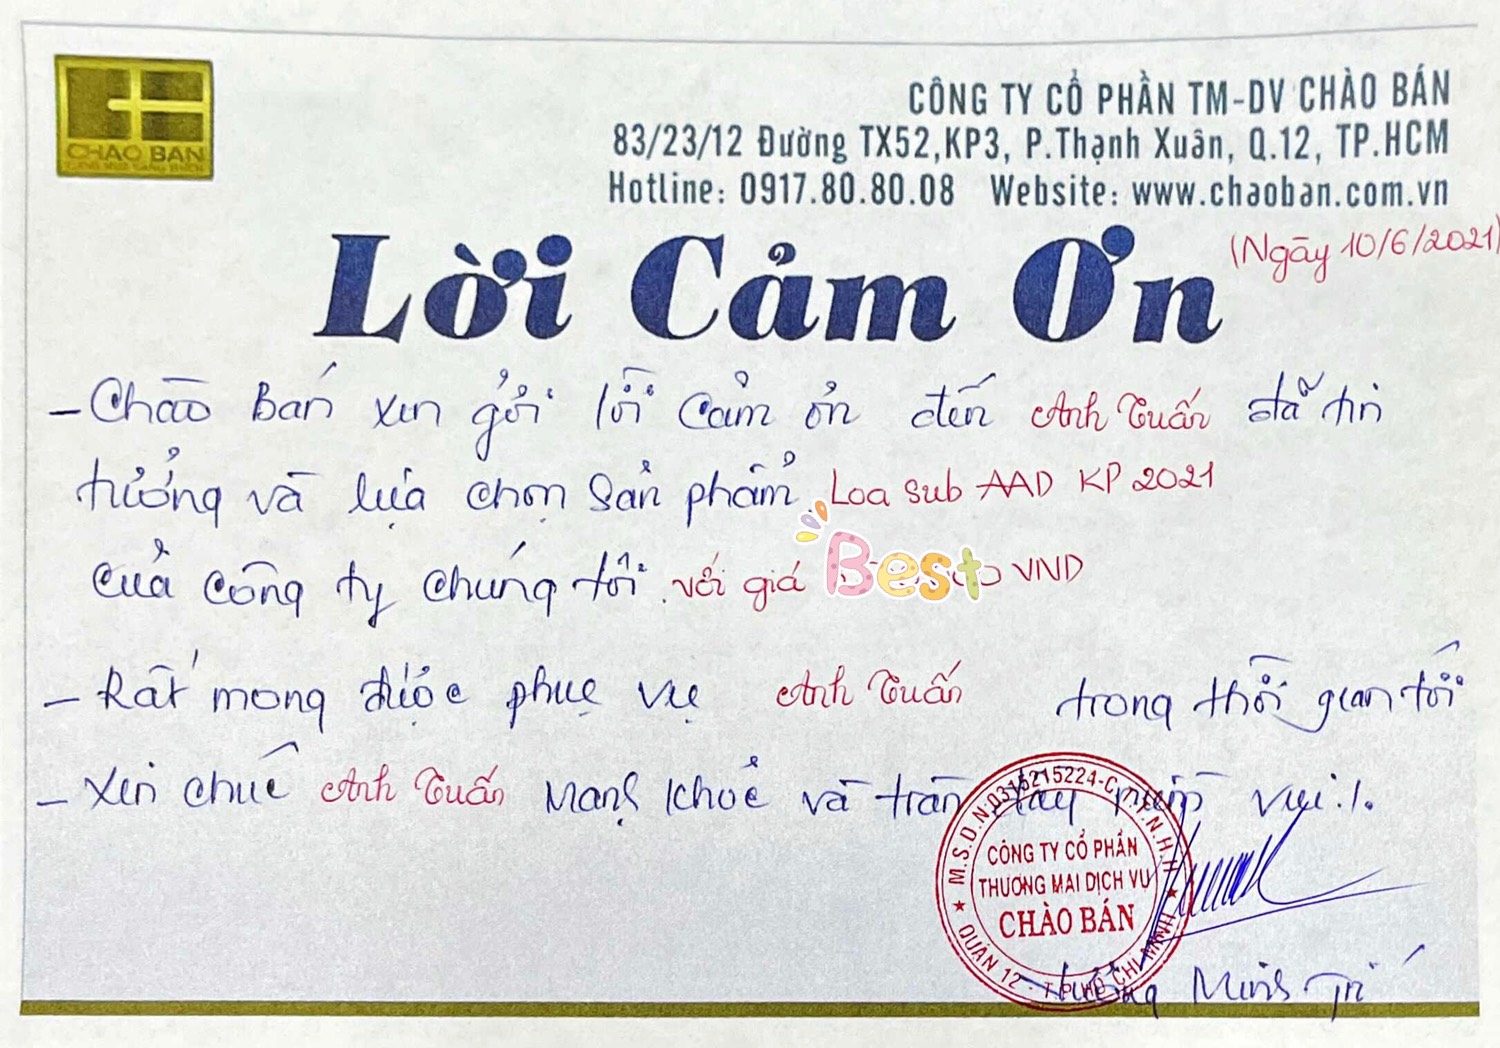 CHÀO BÁN
CÔNG TY CỔ PHẦN TM-DV CHÀO BÁN
83/23/12 Đường TX52,KP3, P.Thạnh Xuân, Q.12, TP.HCM
Hotline: 0917.80.80.08 Website: www.chaoban.com.vn
Lời Cảm Ơn
(Ngày 10/6/2021)
- Chào Bán xin gởi lời cảm ơn đến Anh Tuấn đã tin
tưởng và lựa chọn sản phẩm Loa Sub AAD KP 2021
của công ty chúng tôi. với giá Best VND
- Rất mong được phục vụ Anh Tuấn trong thời gian tới
- Xin chúc Anh Tuấn mạnh khoẻ và tràn đầy niềm vui./.
M.S.D.N:0315215224-C.T.T.N.H.H
CÔNG TY CỔ PHẦN
THƯƠNG MẠI DỊCH VỤ
CHÀO BÁN
★ QUẬN 12 - T.P HỒ CHÍ MINH ★
Minh Trí